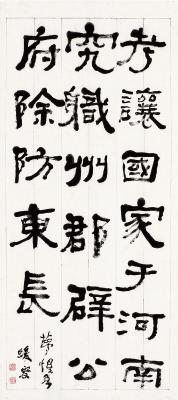 考讓國家于河南
究職州郡辟公
府除防東長